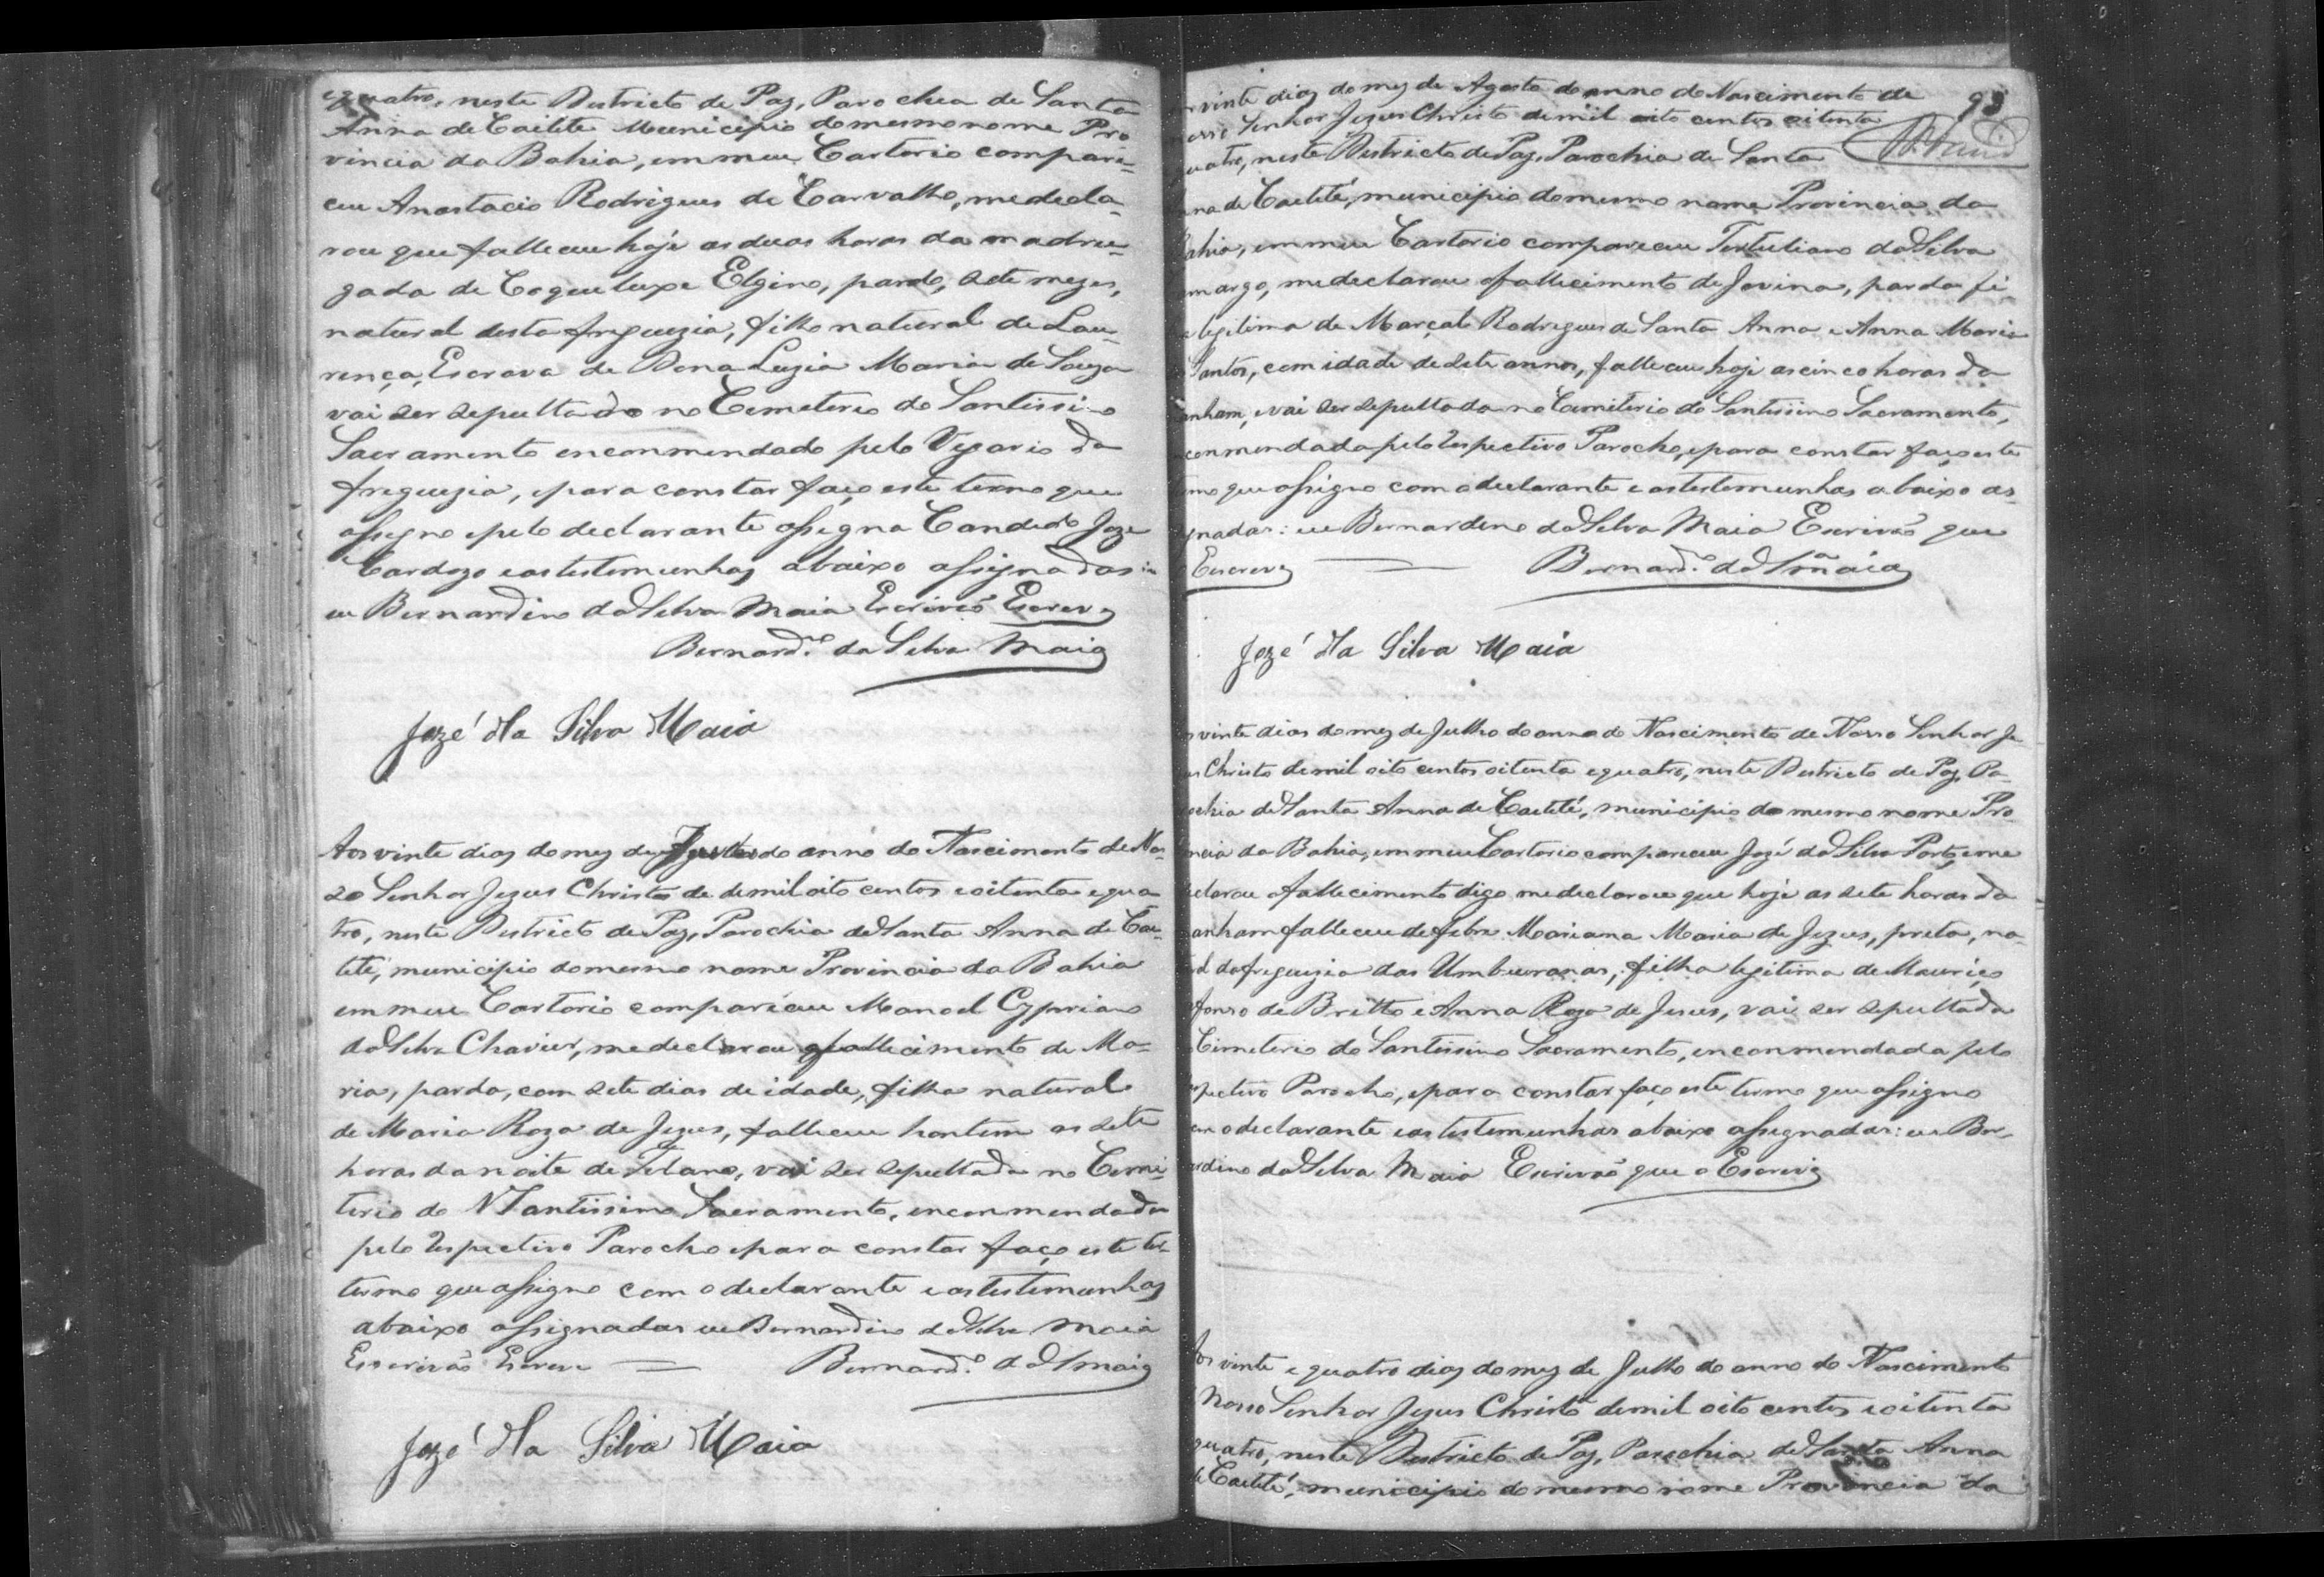 e quatro, neste Destricto de Paz, Parochea de Santa
Anna de Caitete Municipio do mesmo nome Pro
vincia da Bahia, em meu Cartorio compare-
ceu Anastacio Rodrigues de Carvalho, me decla-
rou que falleceu hoje as duas horas da madru-
gada de Coqueluxe Elgino, pardo, sete mezes,
natural desta freguezia, filho natural de Lau-
rença, Escrava de Dona Luzia Maria de Souza
vai ser sepultado no Cemeterio do Santissimo
Sacramento enconmendado pelo Vigario da
freguezia, e para constar faço este termo que
assigno e pelo declarante assigna Candido Joze
Cardozo e as testemunhas abaixo assignadas
eu Bernardino da Silva Maia Escrivão Escrevy
Bernard.no da Silva Maia
Jozé da Silva Maia
Aos vinte dias do mez de do anno do Nascimento de Nos-
so Senhor Jezus Christo de de mil oito centos e oitenta e qua
tro, neste Destricto de Paz, Parochia de Santa Anna de Cae-
tité, municipio do mesmo nome Provincia da Bahia
em meu Cartorio compareceu Manoel Cypriano
da Silva Chavier, me declarou o fallecimento de Ma-
ria, parda, com sete dias de idade, filha natural
de Maria Roza de Jezus, falleceu hontem as sete
horas da noite de Tetano, vai ser sepultada no Cemi-
terio do N Santissimo Sacramento, enconmendada
pelo respectivo Parocho e para constar faço este ter
termo que assigno com o declarante e as testemunhas
abaixo assignadas eu Bernardino da Silva Maia
Escrivão Escrevi — Bernard.o da S Maia
Jozé da Silva Maia
vinte dias do mez de Agosto do anno do Nascimento de
osso Senhor Jezus Christo de mil oito centos oitenta
93
uatro, neste Destricto de Paz, Parochia de Santa
na de Caetité, municipio do mesmo nome Provincia da
ahia, em meu Cartorio compareceu Tertuliano da Silva
margo, me declarou o fallecimento de Jovina, parda fi
a legitima de Marçal Rodrigues de Santa Anna e Anna Maria
Santos, com idade de sete annos, falleceu hoje as cinco horas da
anham, e vai ser sepultada no Cemiterio do Santissimo Sacramento,
conmendada pelo respectivo Parocho, e para constar faço este
mo que assigno com o declarante e as testemunhas abaixo as-
gnadas: eu Bernardino da Silva Maia Escrivão que
Escrevy — Bernard.o da S Maia
Jozé da Silva Maia
s vinte dias do mez de Julho do anno do Nascimento de Nosso Senhor Je
us Christo de mil oito centos oitenta e quatro, neste Destricto de Paz, Pa-
ochia de Santa Anna de Caetité, municipio do mesmo nome Pro-
ncia da Bahia, em meu Cartorio compareceu Jozé da Silva e me
clarou o fallecimento digo me declarou que hoje as sete horas da
anham falleceu de febre Mariana Maria de Jezus, preta, na-
al da freguezia das Umburanas, filha legitima de Mauricio
Afonso de Britto e Anna Roza de Jesus, vai ser sepultada
Cimeterio do Santissimo Sacramento, enconmendada pelo
spectivo Parocho, e para constar faço este termo que assigno
om o declarante e as testemunhas abaixo assignadas: eu Ber-
ardino da Silva Maia Escrivão que o Escrevy
Aos vinte e quatro dias do mez de Julho do anno do Nascimento
Nosso Senhor Jezus Christo de mil oito centos e oitenta
quatro, neste Destricto de Paz, Parochia de Santa Anna
de Caetité, municipio do mesmo nome Provincia da